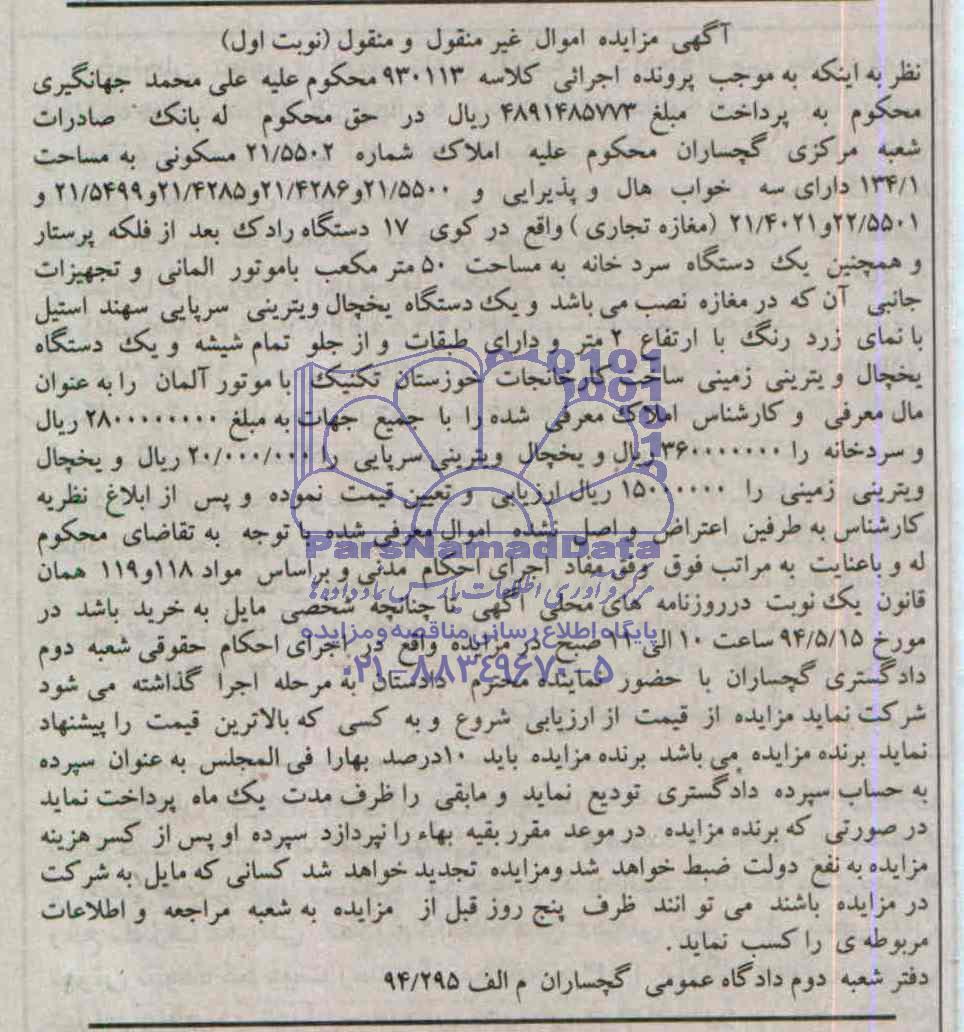 آگهی مزایده اموال غیر منقول و منقول (نوبت اول)
نظر به اینکه به موجب پرونده اجرائی کلاسه ۹۳۰۱۱۳ محکوم علیه علی محمد جهانگیری
محکوم به پرداخت مبلغ ۴۸۹۱۴۸۵۷۷۳ ریال در حق محکوم له بانک صادرات
شعبه مرکزی گچساران محکوم علیه املاک شماره ۲۱/۵۵۰۲ مسکونی به مساحت
۱۳۴/۱ دارای سه خواب هال و پذیرایی و ۲۱/۵۵۰۰و۲۱/۴۲۸۶و۲۱/۴۲۸۵و۲۱/۵۴۹۹ و
۲۲/۵۵۰۱و۲۱/۴۰۲۱ (مغازه تجاری) واقع در کوی ۱۷ دستگاه رادک بعد از فلکه پرستار
و همچنین یک دستگاه سرد خانه به مساحت ۵۰ متر مکعب باموتور المانی و تجهیزات
جانبی آن که در مغازه نصب می باشد و یک دستگاه یخچال ویترینی سرپایی سهند استیل
با نمای زرد رنگ با ارتفاع ۲ متر و دارای طبقات و از جلو تمام شیشه و یک دستگاه
یخچال ویترینی زمینی ساخت کارخانجات خوزستان تکنیک با موتور آلمان را به عنوان
مال معرفی و کارشناس املاک معرفی شده را با جمیع جهات به مبلغ ۲۸۰۰۰۰۰۰۰۰ ریال
و سردخانه را ۳۶۰۰۰۰۰۰۰ ریال و یخچال ویترینی سرپایی را ۲۰/۰۰۰/۰۰۰ ریال و یخچال
ویترینی زمینی را ۱۵۰۰۰۰۰۰ ریال ارزیابی و تعیین قیمت نموده و پس از ابلاغ نظریه
کارشناس به طرفین اعتراض واصل نشده اموال معرفی شده با توجه به تقاضای محکوم
له و باعنایت به مراتب فوق وفق مفاد اجرای احکام مدنی و براساس مواد ۱۱۸و۱۱۹ همان
قانون یک نوبت درروزنامه های محلی آگهی تا چنانچه شخصی مایل به خرید باشد در
مورخ ۹۴/۵/۱۵ ساعت ۱۰ الی ۱۱ صبح در مزایده واقع در اجرای احکام حقوقی شعبه دوم
دادگستری گچساران با حضور نماینده محترم دادستان به مرحله اجرا گذاشته می شود
شرکت نماید مزایده از قیمت از ارزیابی شروع و به کسی که بالاترین قیمت را پیشنهاد
نماید برنده مزایده می باشد برنده مزایده باید ۱۰درصد بهارا فی المجلس به عنوان سپرده
به حساب سپرده دادگستری تودیع نماید و مابقی را ظرف مدت یک ماه پرداخت نماید
در صورتی که برنده مزایده در موعد مقرر بقیه بهاء را نپردازد سپرده او پس از کسر هزینه
مزایده به نفع دولت ضبط خواهد شد ومزایده تجدید خواهد شد کسانی که مایل به شرکت
در مزایده باشند می تو انند ظرف پنج روز قبل از مزایده به شعبه مراجعه و اطلاعات
مربوطه ی را کسب نماید.
دفتر شعبه دوم دادگاه عمومی گچساران م الف ۹۴/۲۹۵
ParsNamadData
مرکز فرآوری اطلاعات پارس نماد داده ها
پایگاه اطلاع رسانی مناقصه و مزایده
۰۲۱-۸۸۳۴۹۶۷۰-۵